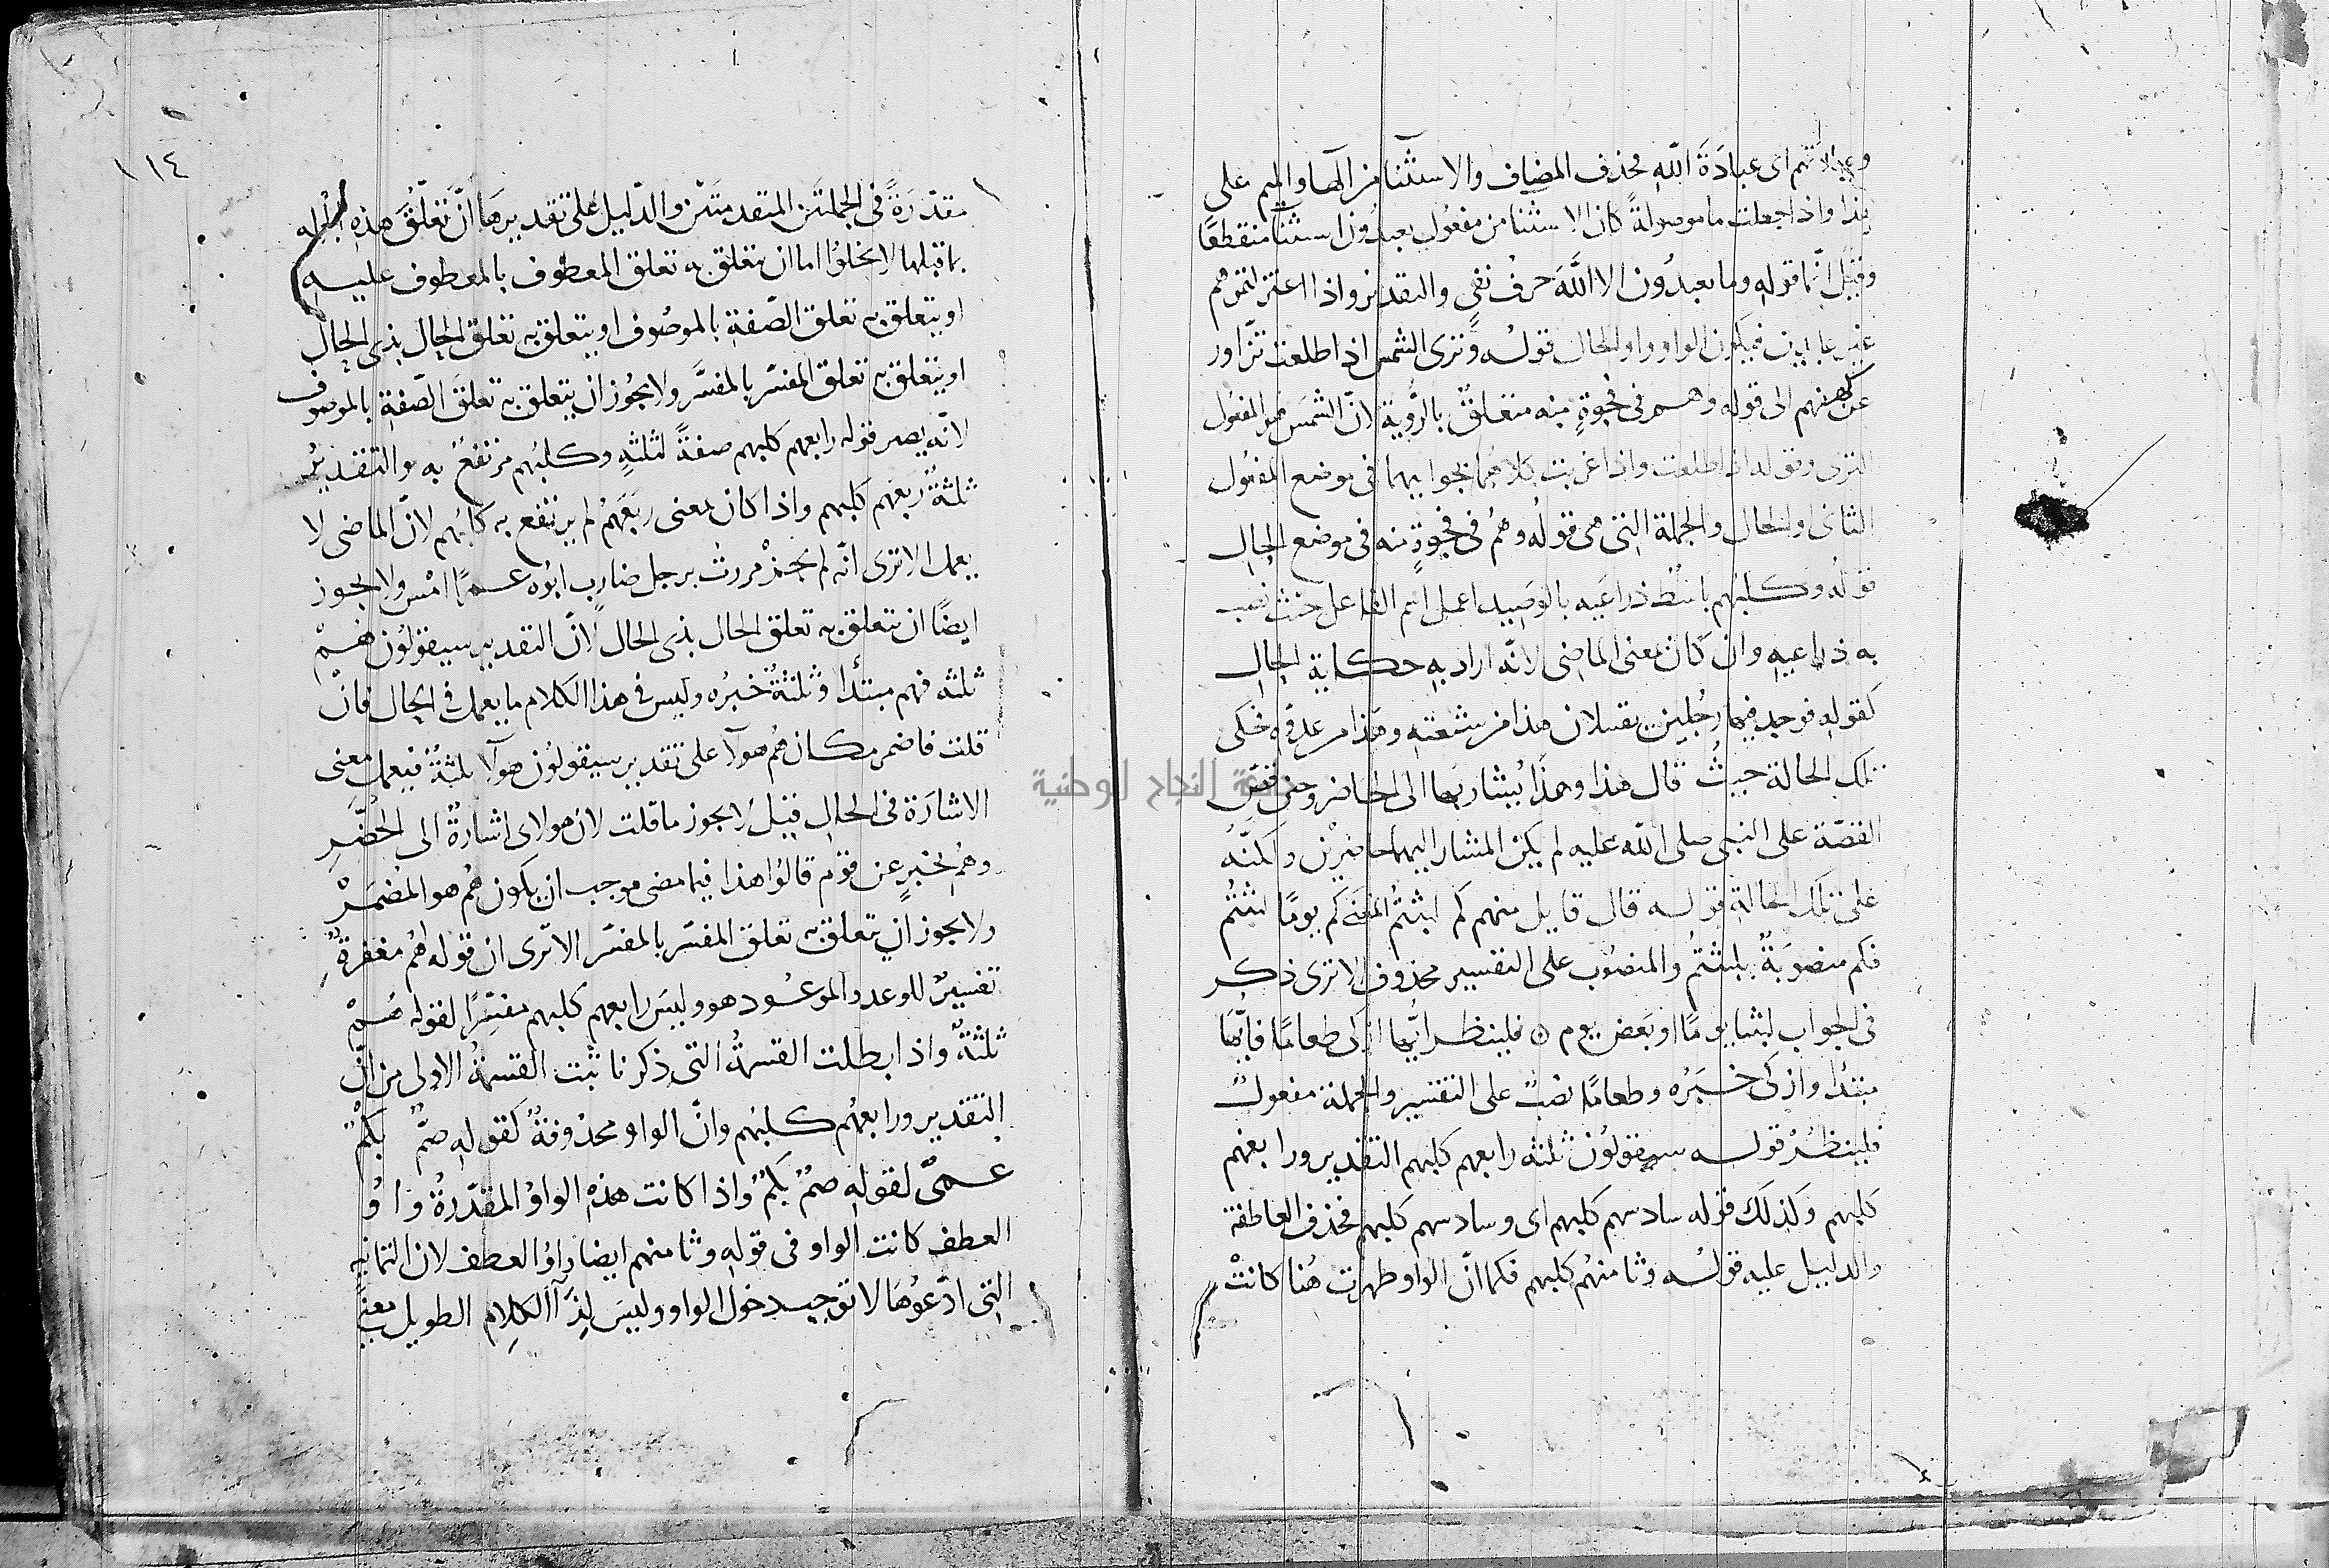 وعبادتهم اى عبادَةَ الله فحذف المضاف والاستثنا من الها والميم على
هذا واذا جعلت ما موصولةً كان الاستثنا من مفعول يعبدون استثنا منقطعًا
وقيل انّما قوله وما يعبدُون الا اللَّهَ حرفُ نفىٍ والتقدير واذا اعتزلتموهم
غير عابدين فيكون الواو واو الحال قولُه وترى الشمس اذا طلعت تزاور
عن كهفهم الى قوله وهم فى فجوةٍ منه متعلقٌ بالرُّوية لانّ الشمسَ هو المفعول
لترى وقوله اذا طلعت واذا غربت كلاهما بجوابيهما فى موضع المفعُول
الثانى او الحال والجملة التى هى قولُه وهُم فى فجوةٍ منه فى موضع الحال
قولُه وكلبُهم باسطٌ ذراعَيه بالوَصِيد اعمل اسم الفاعل حيث نصب
به ذراعيه وان كان بمعنى الماضى لانّه اراد به حكاية الحال
كقوله فوجد فيها رجُلين يقتتلان هذا من شيعته وهذا من عدوّه فحكى
تلك الحالة حيثُ قال هذا وهذا يُشار بهما الى الحاضر وحين قصّ
القصّة على النبى صلى الله عليه لم يكن المشار اليهما حاضِرَيْن ولكنّهُ
على تلك الحالة قولُه قال قايل منهم كم لبثتُم المعنى كم يومًا لبثتُم
فكم منصوبَةٌ بلبثتُم والمنصُوب على التفسير محذوف الا ترى ذكر
فى الجواب لبثنا يومًا او بَعضَ يوم ۞ فلينظر ايُّها ازكى طعامًا فايّها
مبتدا وازكى خبَرُه وطعامًا نصبٌ على التفسير والجملة مفعولُ
فلينظُرْ قولُه سيقولُون ثلثه رابعهم كلبهم التقدير ورابعهم
كلبهم وكذلك قوله سادسهم كلبهم اى وسادسهم كلبهم فحذف العاطفة
والدليل عليه قولُه وثامنهُم كلبهم فكما انّ الواو ظهرت هُنا كانتْ
١١٤
مقدّرَةً فى الجملتَين المتقدمتَيْن والدّليل على تقديرهَا انّ تعلّقَ هذه الجملة
بما قبلها لا يخلُوا اما ان يتعلق به تعلق المعطوف بالمعطوف عليه
او يتعلق به تعلق الصّفة بالموصُوف او يتعلق به تعلق الحال بذى الحال
او يتعلق به تعلق المفسّر بالمفسَّر ولا يجُوز ان يتعلق به تعلقَ الصّفة بالموصوف
لانّه يصير قوله رابعهم كلبهم صفةً لثلثهٍ وكلبُهم مرتفعٌ به والتقديرُ
ثلثةٌ ربعهم كلبهم واذا كان بمعنى ربَعَهُم لم يرتفع به كلبُهم لانّ الماضى لا
يعمل الا ترى انّه لم يجزْ مررتُ برجل ضاربٍ ابُوه عمرًا امْس ولا يجوز
ايضًا ان يتعلق به تعلق الحال بذى الحال لانّ التقدير سيقولُون هُمْ
ثلثه فهم مبتدأ وثلثةٌ خبرُه وليس فى هذا الكلام ما يعمل فى الحال فانْ
قلتَ فاضمر مكان هُم هولآ على تقدير سيقولُون هولآ ثلثةٌ فيعمل معنى
الاشارَة فى الحال قيل لا يجوز ما قلت لان هولاى اشارةٌ الى الحُضَّرِ
وهُم يخبرٍ عن قوم قالُوا هذا فيما مضى موجب ان يكون هُم هو المُضمَرْ
ولا يجوز ان يتعلق به تعلق المفسّر بالمفسّر الا ترى ان قوله لهُم مغفرةٌ
تفسيرٌ للوعد والموعُود هو وليسَ رابعهم كلبهم مفسِّرًا لقوله هُمْ
ثلثةٌ واذا بطلت القسمةُ التى ذكرنا ثبت القسمةُ الاولى من انّ
التقدير ورابعهُم كلبُهم وانّ الواو محذوفةٌ كقوله صمٌّ بُكمٌ
عمىٌّ لقوله صُمٌّ بُكمٌ واذا كانت هذه الواوُ المقدّرةُ واوُ
العطف كانت الواو فى قوله وثامنهم ايضا واوُ العطف لان الثمانيه
التى ادّعوُهَا لا توجبُ دخول الواو وليسَ لهذا الكلام الطويل معنًى
جامعة النجاح الوطنية